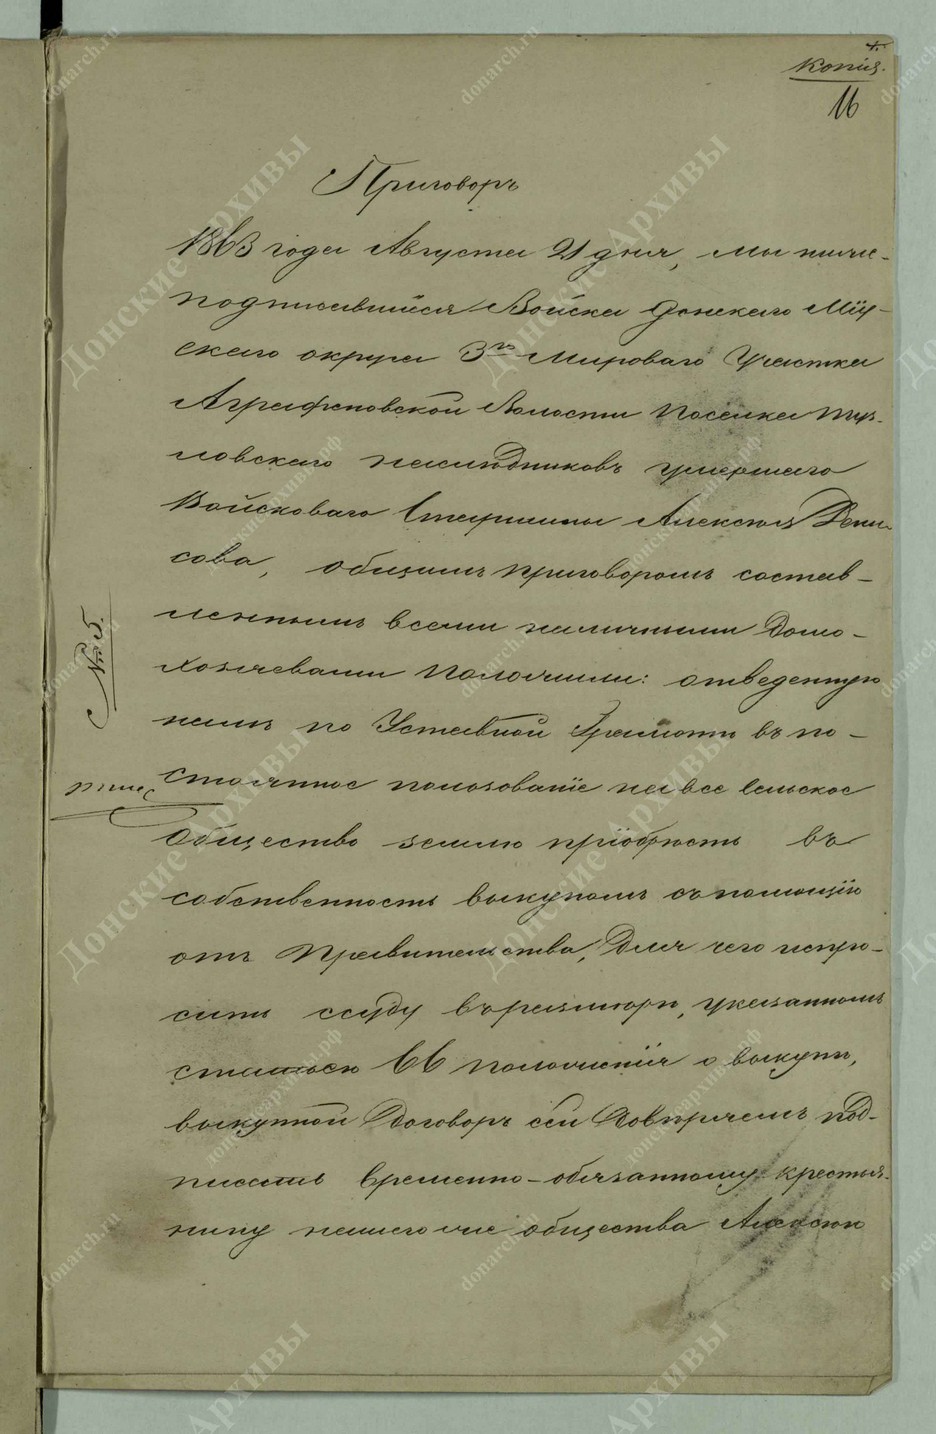 Копія.
16
Приговоръ
1863 года Августа 21 дня, мы ниже-
подписавшіеся Войска Донскаго Міу-
скаго округа 3го Мироваго Участка
Аграфеновской Волости Поселка Туз-
ловскаго наслѣдниковъ умершаго
Войсковаго Старшины Алексѣя Дени-
сова, общимъ приговоромъ состав-
леннымъ всеми наличными Домо-
хозяевами положили: отведенную
намъ по Уставной Грамотѣ въ по-
стоянное пользованіе на все сельское
общество землю пріобрѣсть въ
собственность выкупомъ съ помощію
отъ Правительства, для чего испро-
сить ссуду въ размѣрѣ, указанномъ
статьею 66 положенія о выкупѣ,
выкупной Договоръ сей довѣряемъ под-
писать временно-обязанному крестья-
нину нашего же общества Алексѣю
№ 5.
Донские Архивы
donarch.ru
донскиеархивы.рф